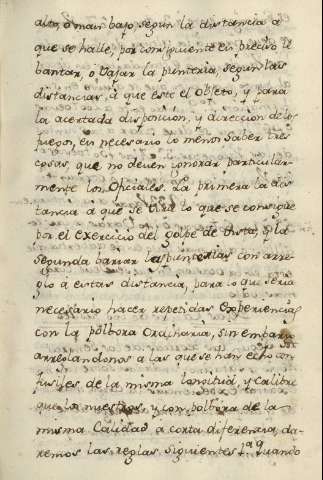 alto, o mais bajo, segun la distancia a
que se halle, por consiguiente es preciso le
bantar, o bajar la punteria, segun las
distancias, á que esté el objeto, y para
la acertada disposicion, y direccion de los
fuegos, es necesario lo menos saber tres
cosas, que no deven ignorar particular-
mente los Oficiales. La primera la dis
tancia á que se tira lo que se consigue
por el Exercicio del golpe de vista, y la
segunda bariar las punterias con arre-
glo a estas distancia, para lo que seria
necesario hacer repetidas Experiencias
con la polbora Ordinaria, sin embargo
arreglandonos a las que se han echo con
fusiles de la misma longitud, y Calibre
que los nuestros, y con polbora de la
misma Calidad a corta diferencia, da-
remos las reglas Siguientes 1.a Quando